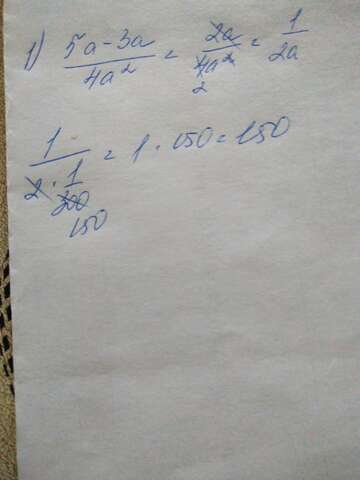 1) (5a - 3a)/(4a²) = 2a/(4a²) = 1/(2a)
2
1/(2 · 1/300) = 1 · 150 = 150
150